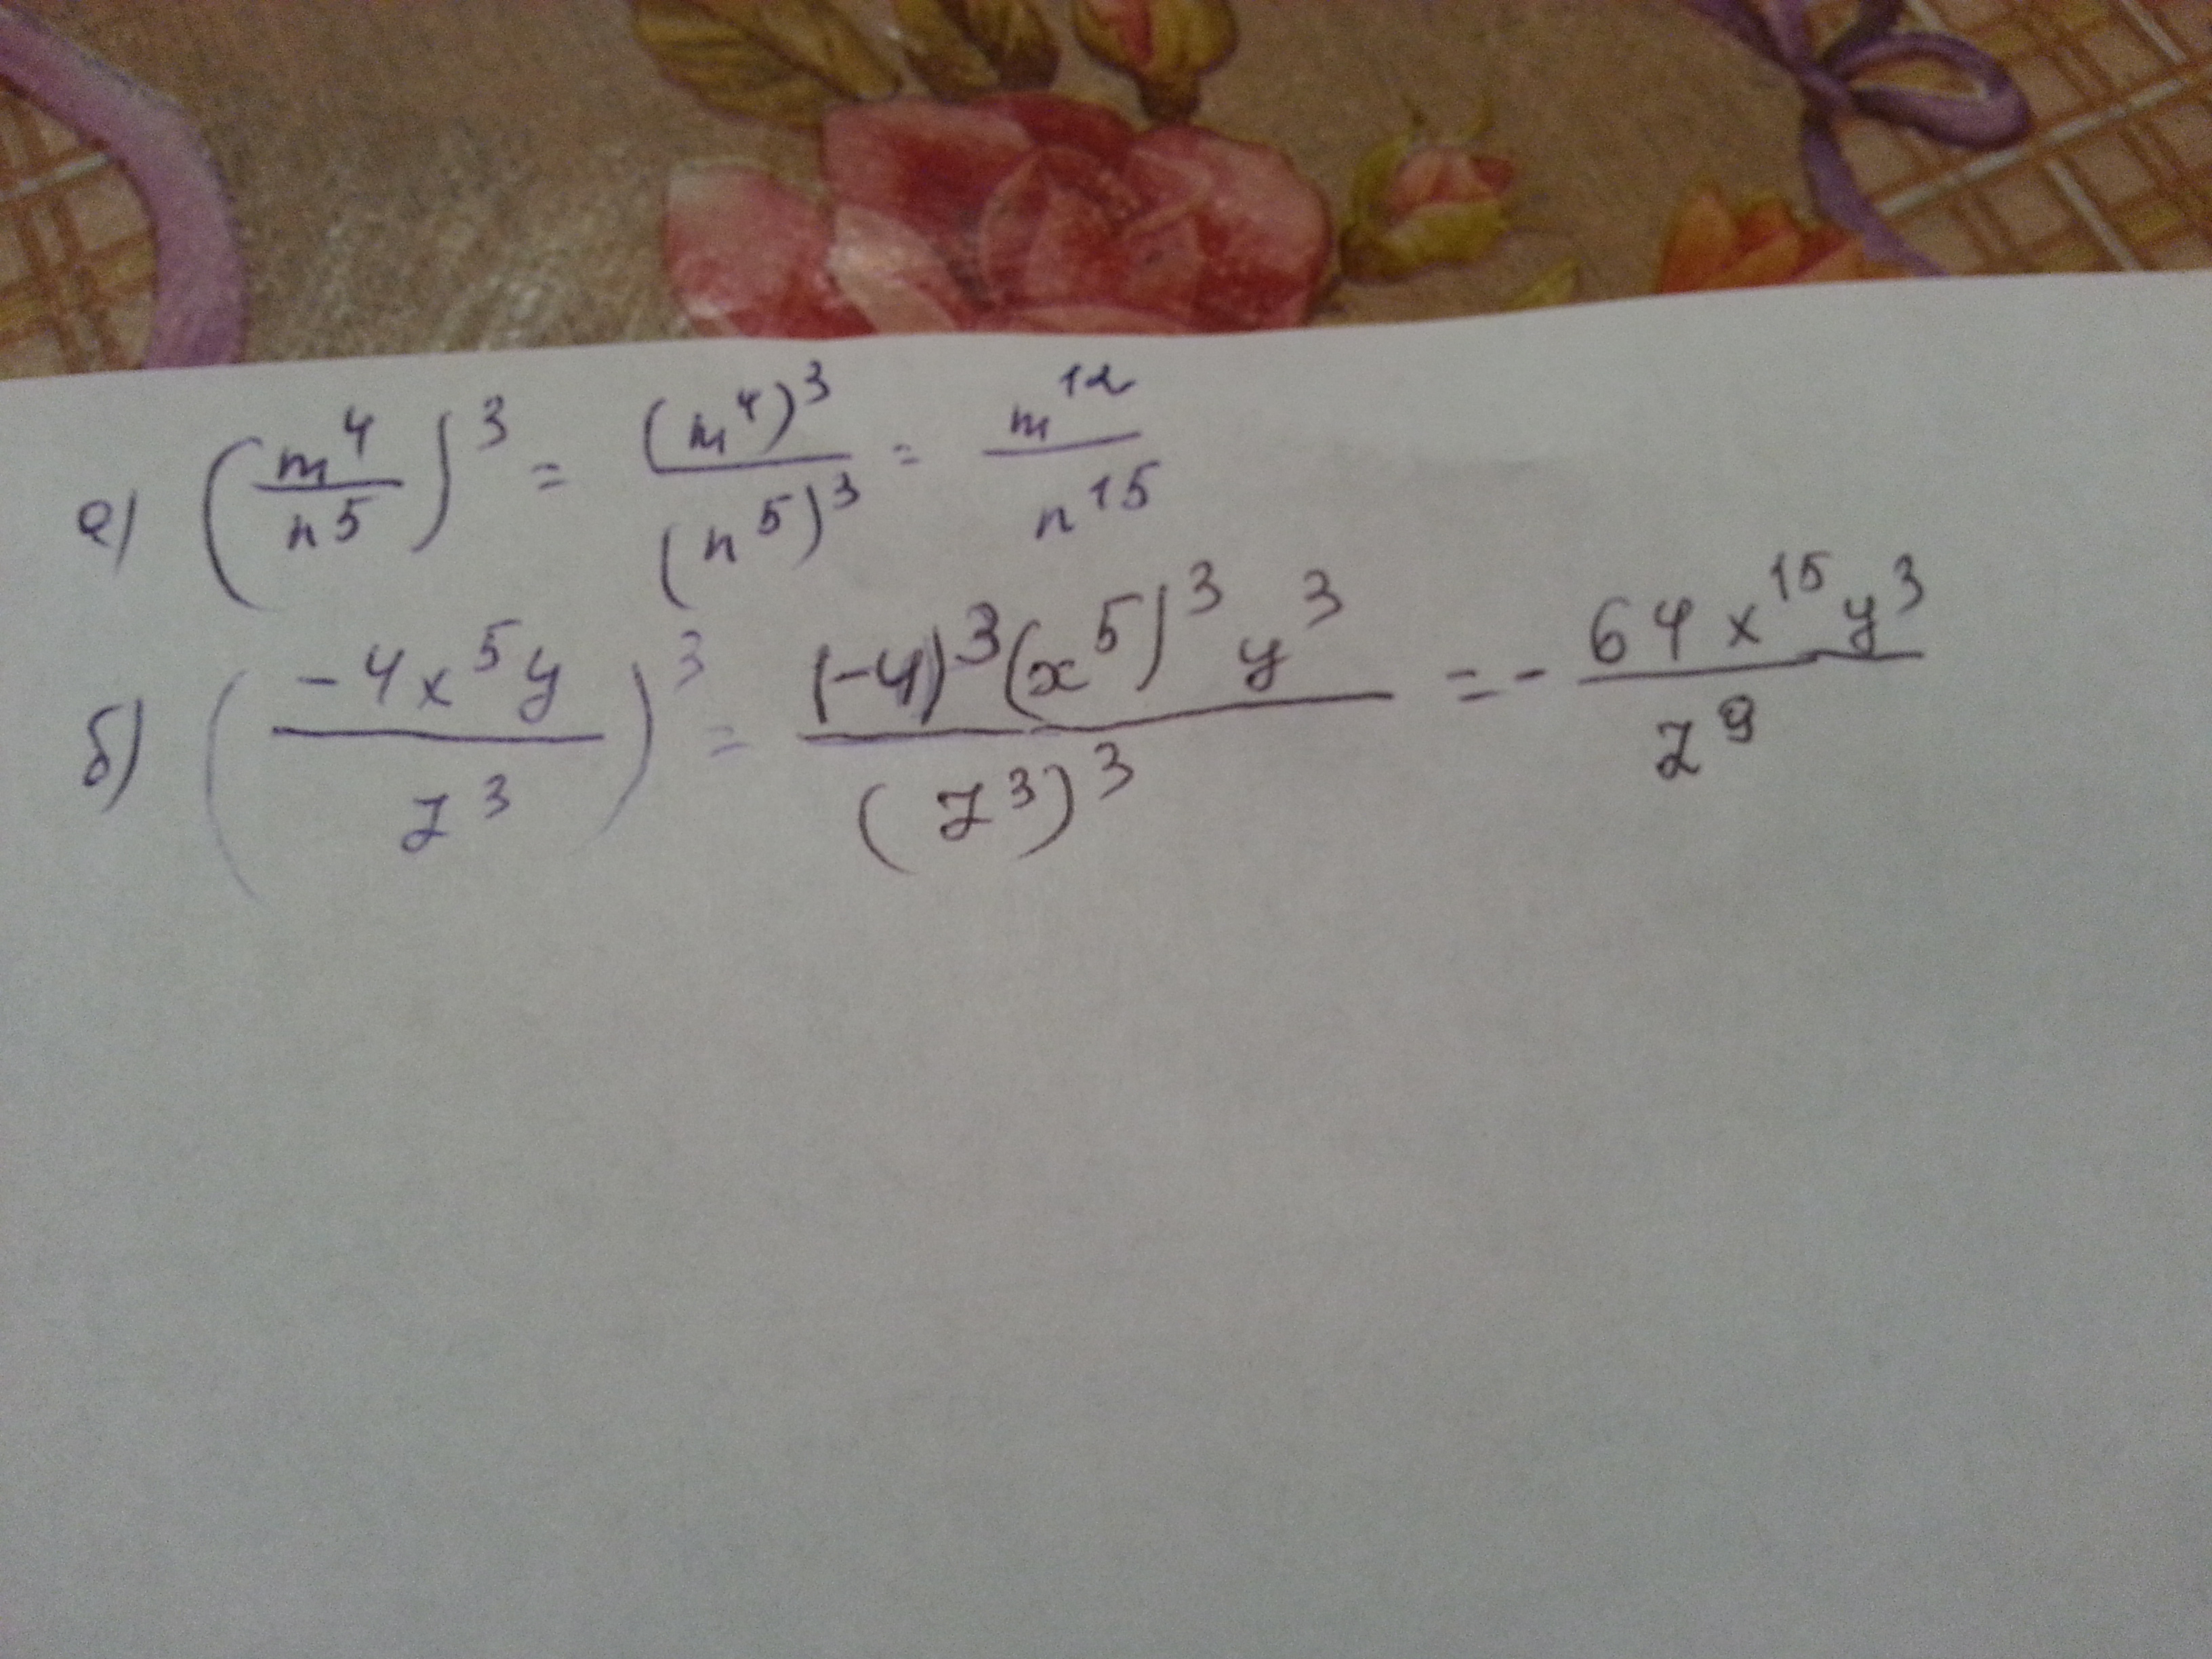 а) (m⁴/n⁵)³ = (m⁴)³/(n⁵)³ = m¹²/n¹⁵
б) (-4x⁵y/z³)³ = (-4)³(x⁵)³y³/(z³)³ = - 64x¹⁵y³/z⁹